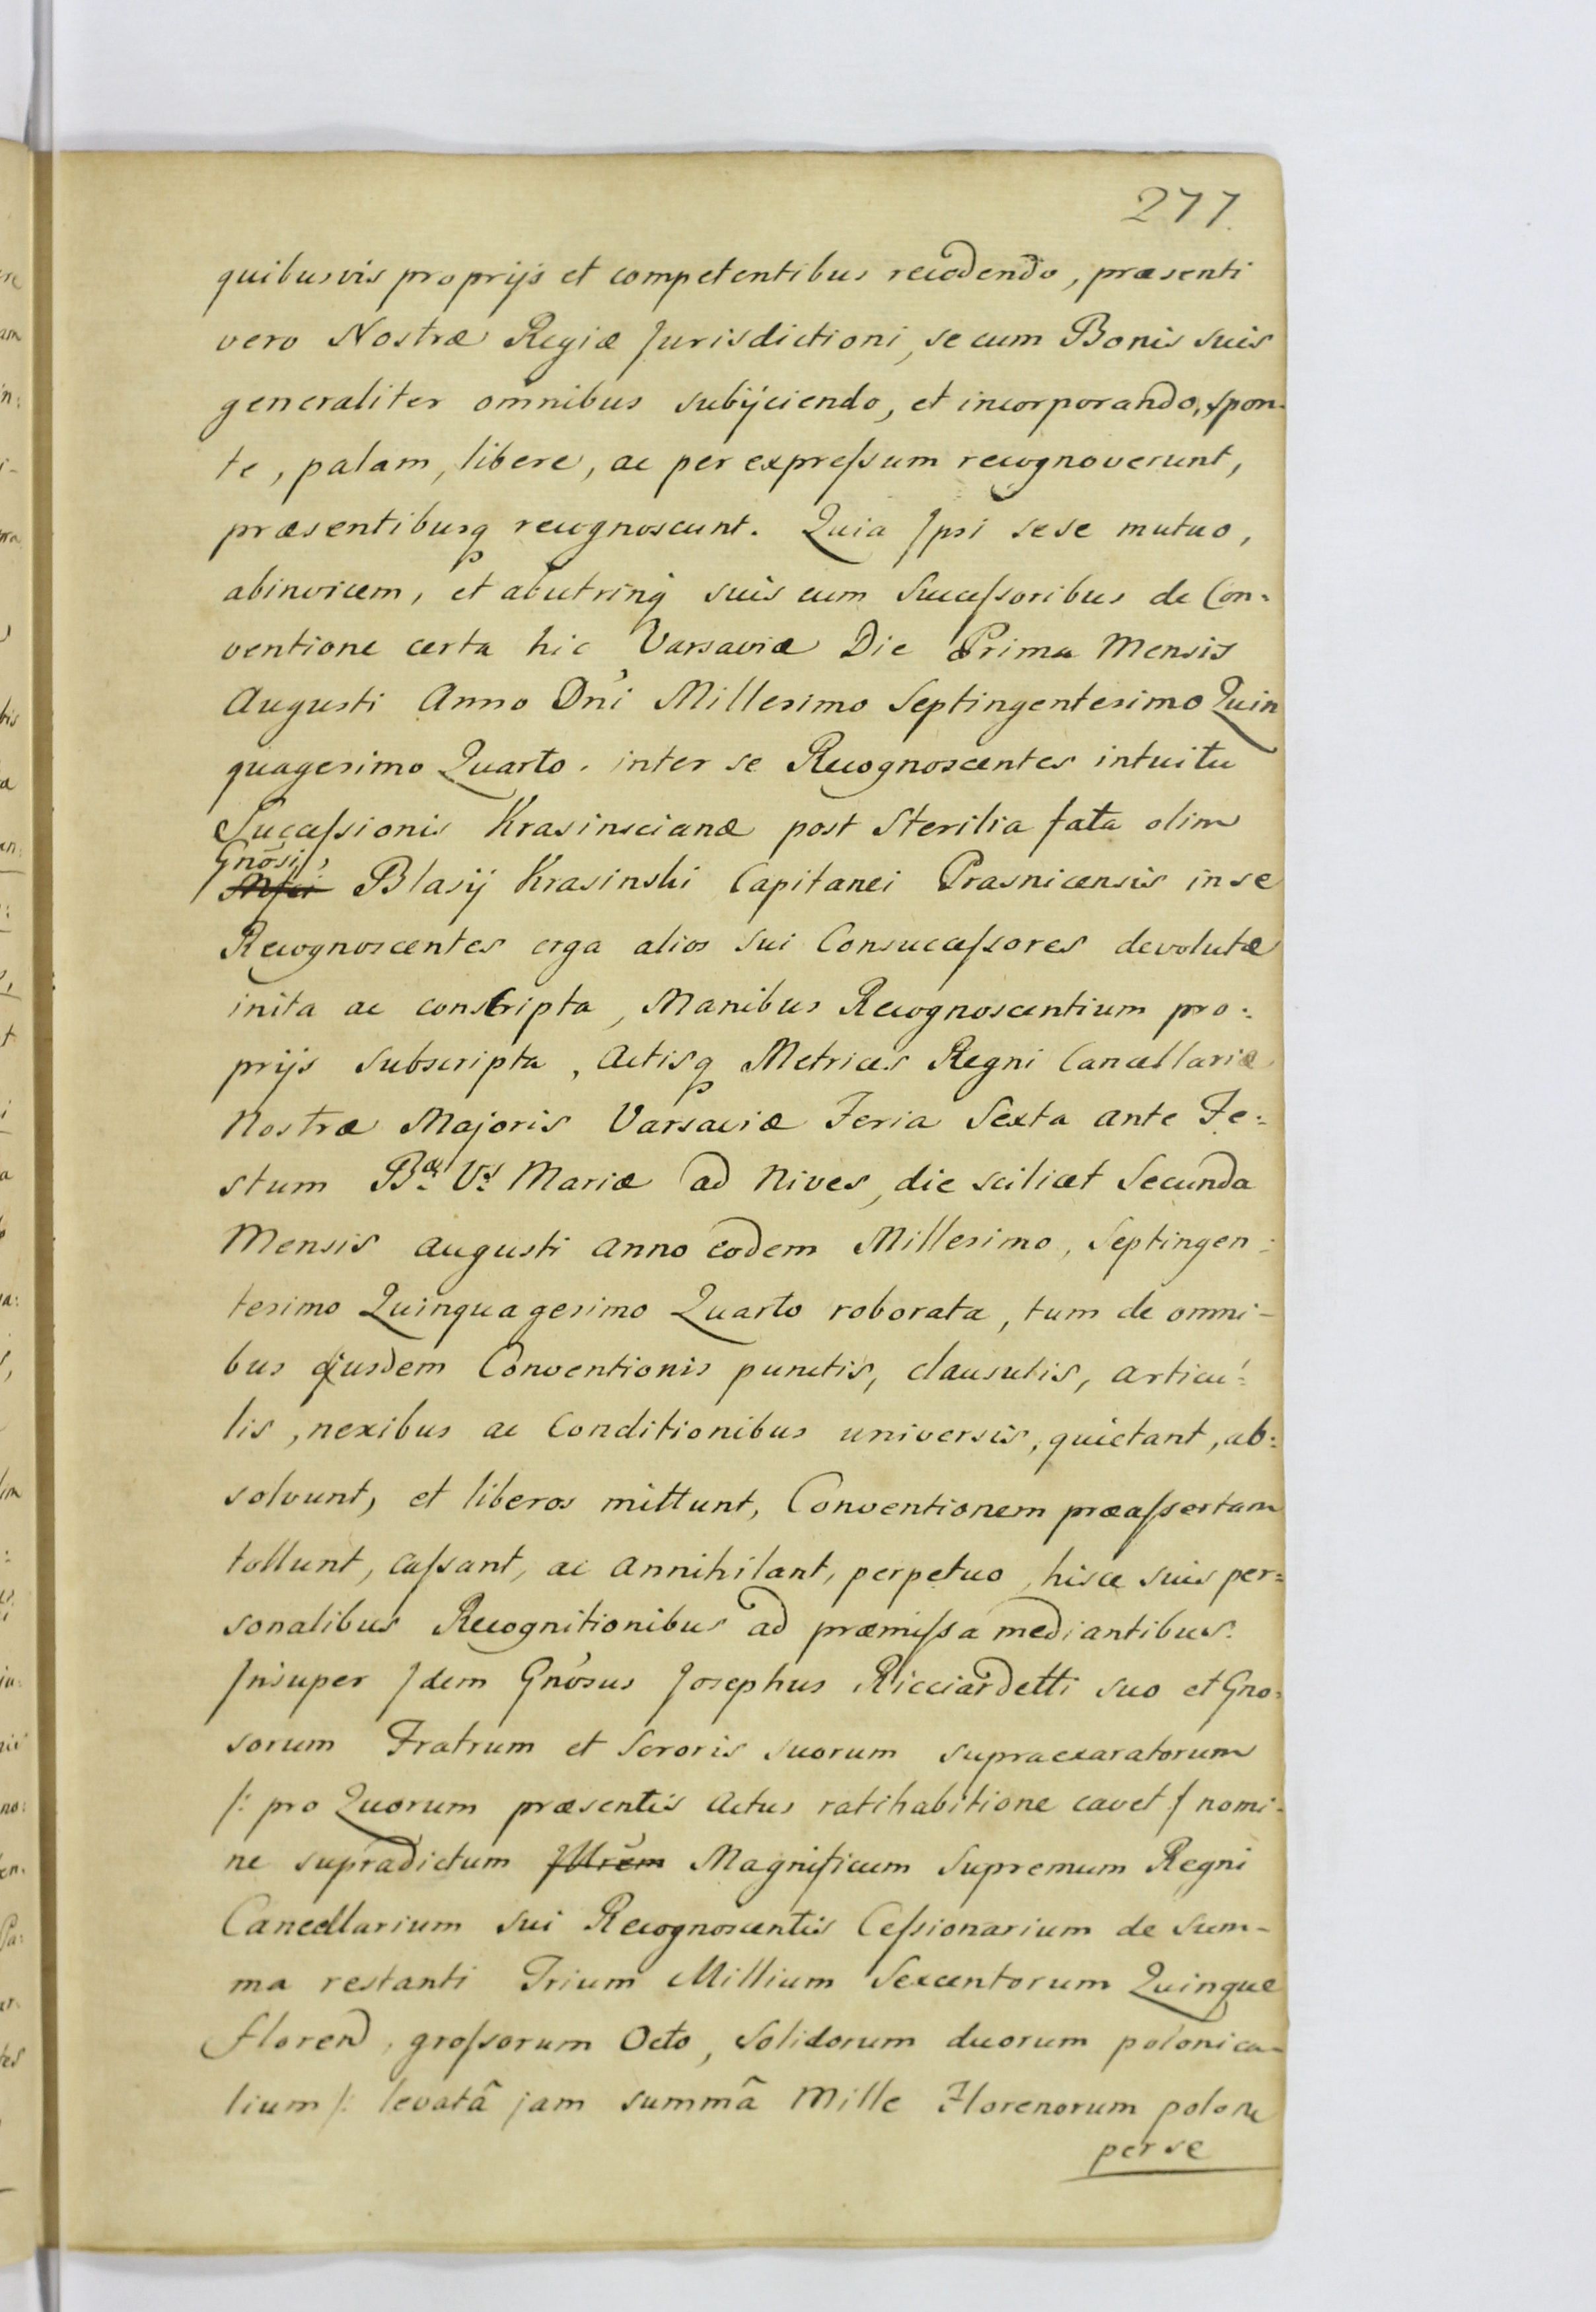 277.
quibusvis proprijs et competentibus recedendo, præsenti
vero Nostræ Regiæ Jurisdictioni, se cum Bonis suis
generaliter omnibus subijciendo, et incorporando, spon-
te, palam, libere, ac per expreſsum recognoverunt,
præsentibusq recognoscunt. Quia Ipsi sese mutuo,
abinvicem, et abutrinq suis cum Succeſsoribus de Con-
ventione certa hic Varsaviæ Die Prima Mensis
Augusti Anno Dni Millesimo Septingentesimo Quin
quagesimo Quarto. inter se Recognoscentes intuitu
Succeſsionis Krasinscianæ post Sterilia fata olim
Gnosi
Blasij Krasinski Capitanei Prasnicensis in se
Recognoscentes erga alios sui Consucceſsores devolutæ
inita ac conscripta, Manibus Recognoscentium pro:
prijs subscripta, Actisq Metrices Regni Cancellariæ
Nostræ Majoris Varsaviæ Feria Sexta ante Fe:
stum Bæ Vs Mariæ ad Nives, die scilicet Secunda
Mensis Augusti Anno eodem Millesimo, Septingen:
tesimo Quinquagesimo Quarto roborata, tum de omni-
bus ejusdem Conventionis punctis, clausulis, articu:
lis, nexibus ac Conditionibus universis, quietant, ab:
solvunt, et liberos mittunt, Conventionem præaſsertam
tollunt, caſsant, ac annihilant, perpetuo, hisce suis per=
sonalibus Recognitionibus ad præmiſsa mediantibus.
Insuper Idem Gnosus Josephus Ricciardetti suo et Gno:
sorum Fratrum et Sororis suorum supraexaratorum
/: pro Quorum præsentis Actus ratihabitione cavet / nomi:
ne supradictum Illrem Magnificum Supremum Regni
Cancellarium sui Recognoscentis Ceſsionarium de Sum-
ma restanti Trium Millium Sexcentorum Quinque
floren, groſsorum Octo, Solidorum duorum polonica-
lium /: levatâ jam summâ Mille Florenorum polon
per se